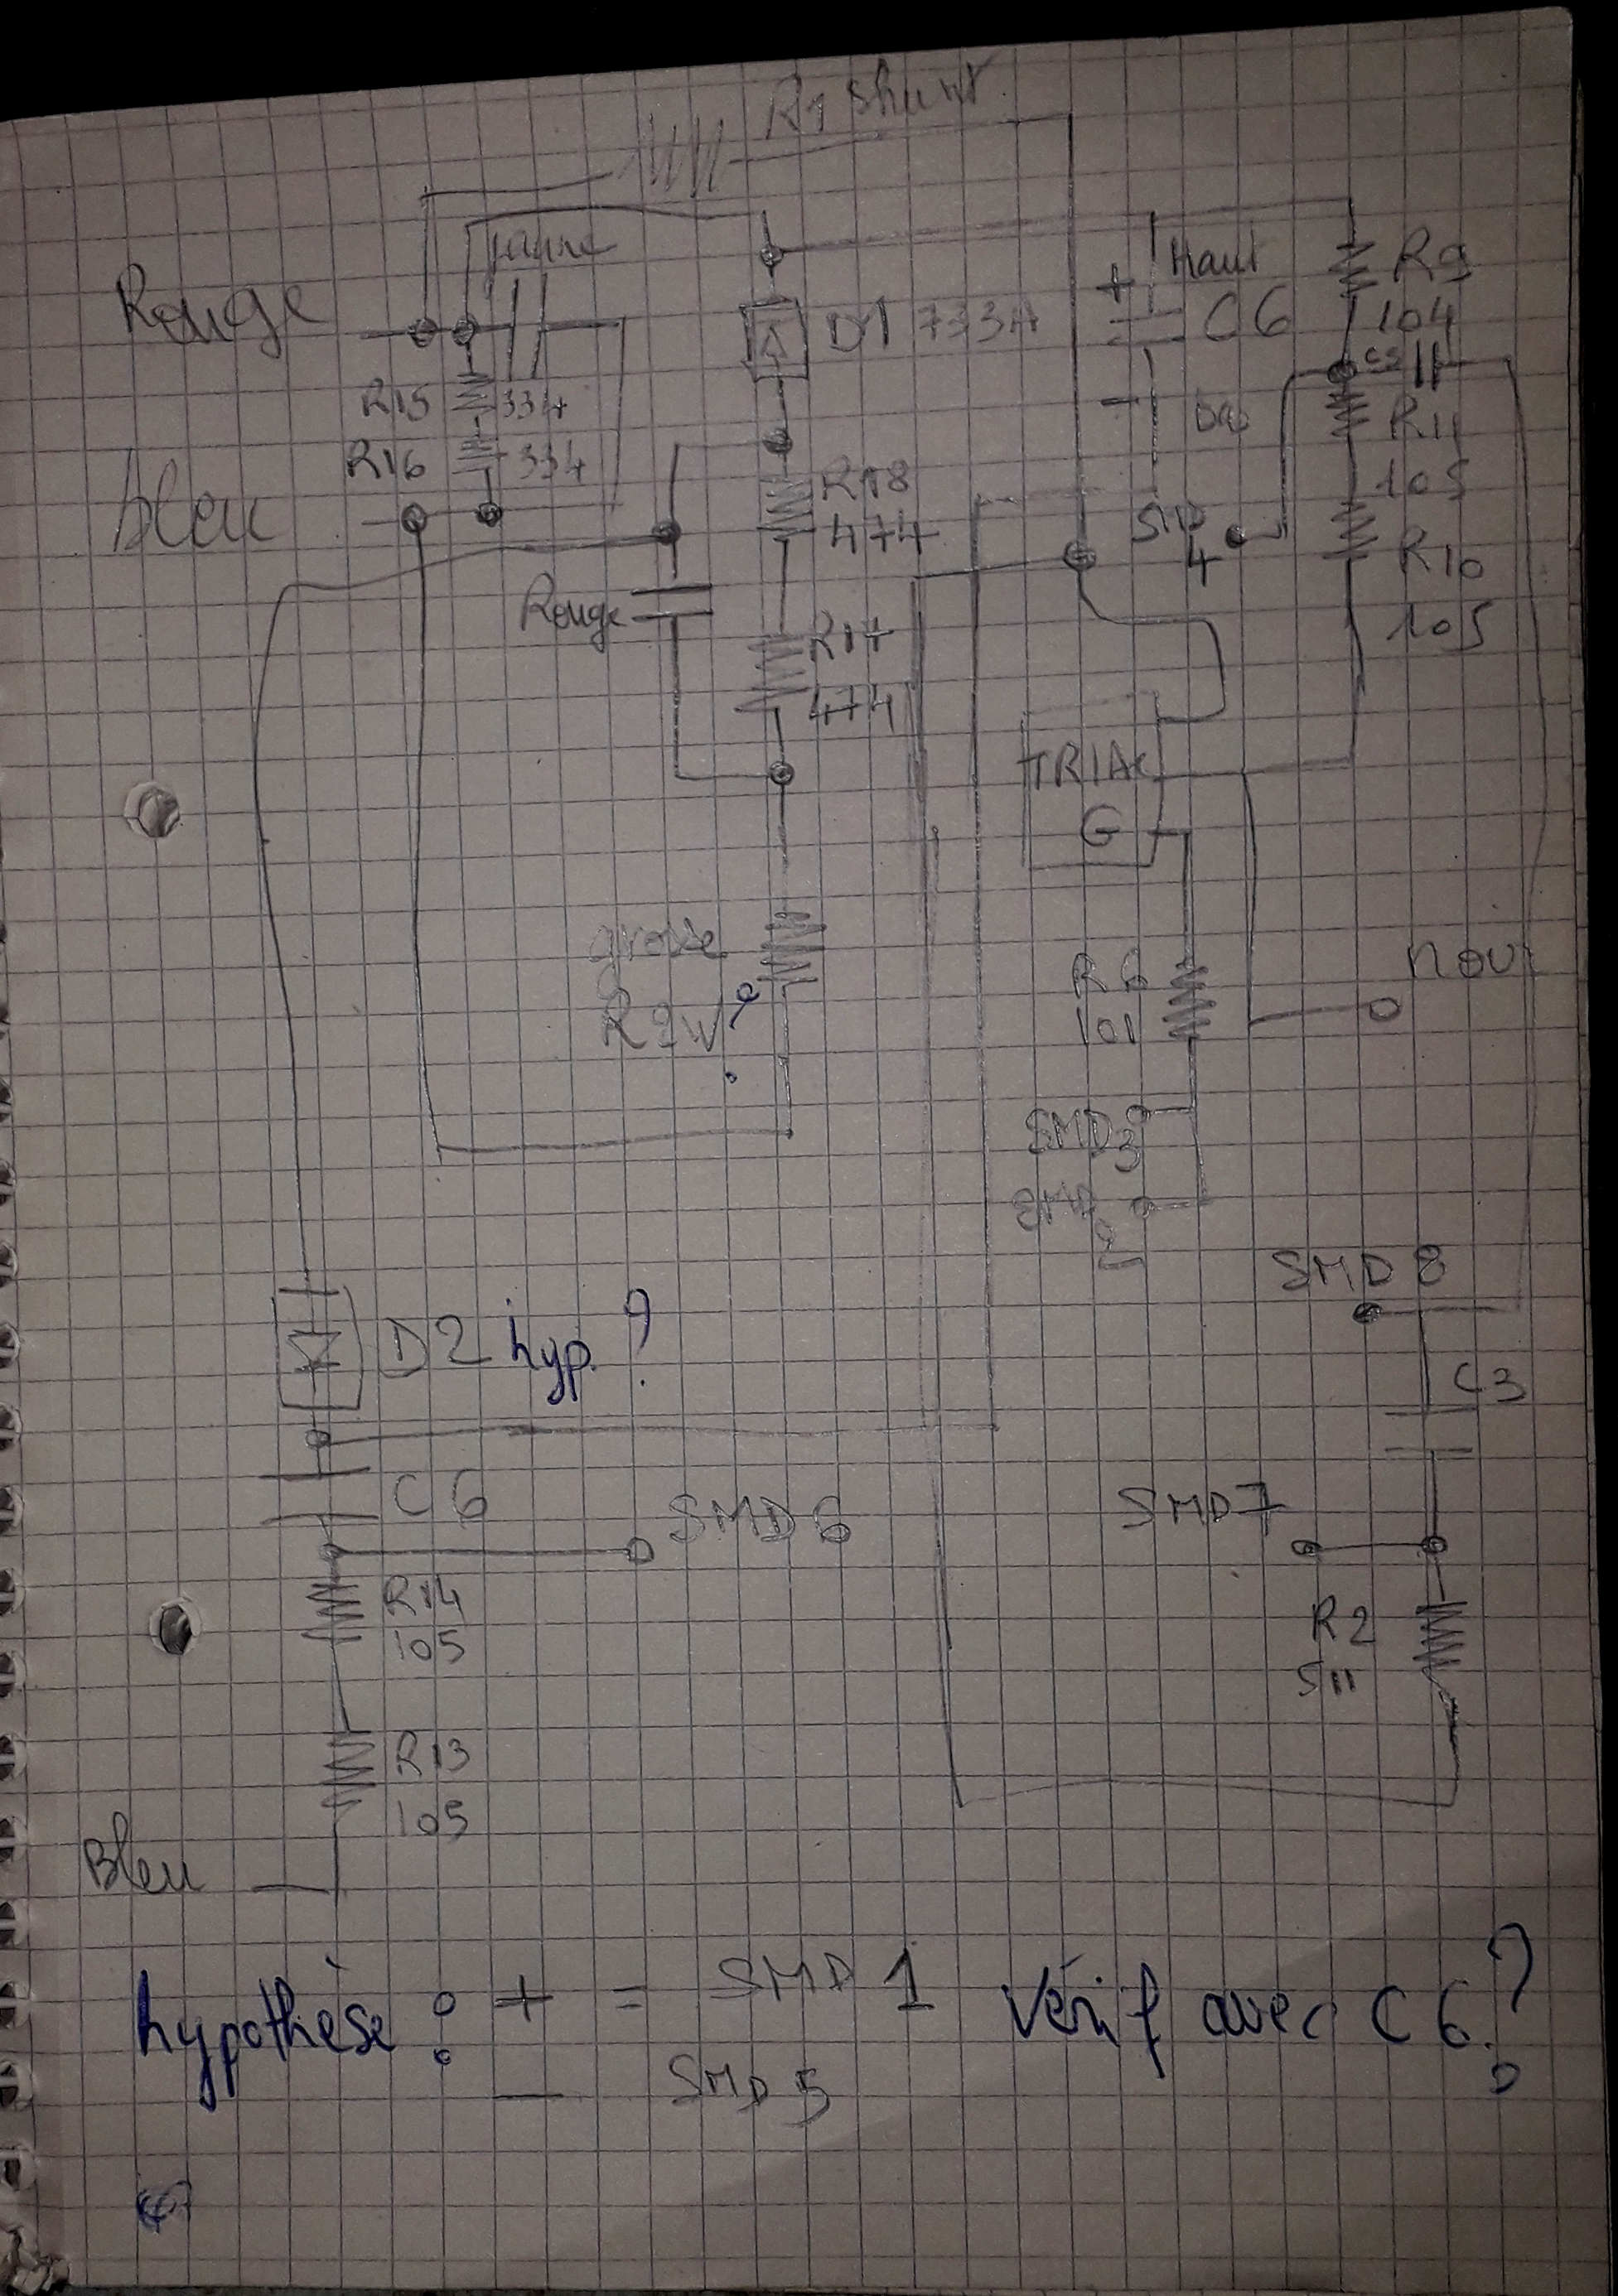 R1 shunt
Rouge
jaune
D1 733A
+
Haut
C6
-
R9
104
C5
R15 334
R16 334
bleu
R18
474
SMD
4
R11
105
R10
105
Rouge
R17
474
TRIAC
G
grosse
R 2W ?
R6
101
noir
SMD3
SMD
2
SMD 8
D2 hyp. ?
C3
C6
SMD6
SMD7
R14
105
R2
511
R13
105
Bleu
hypothèse : + = SMD 1 Vérif avec C6 ?
- SMD 5